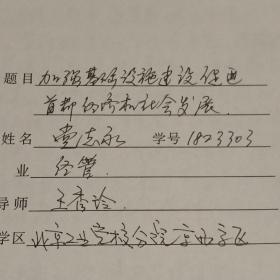 题目 加强基础设施建设促进
首都经济和社会发展.
姓名 党志永 学号 1823303
业 经管.
导师 王秀玲.
学区 北京工业学校分院京西学区